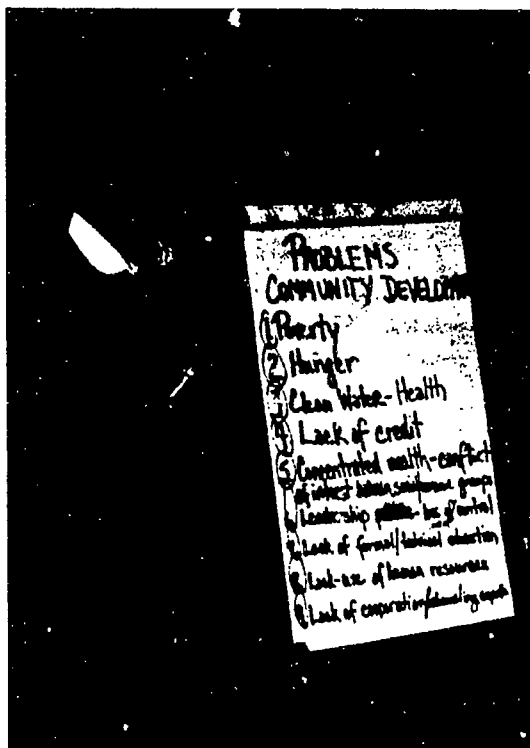 PROBLEMS
COMMUNITY DEVELOPM
1 Poverty
2 Hunger
3 Clean Water-Health
4 Lack of credit
5 Concentrated wealth-conflict
of interest between groups
6 Leadership of control
7 Lack of formal/technical education
8 Lack-use of human resources
9 Lack of cooperation/